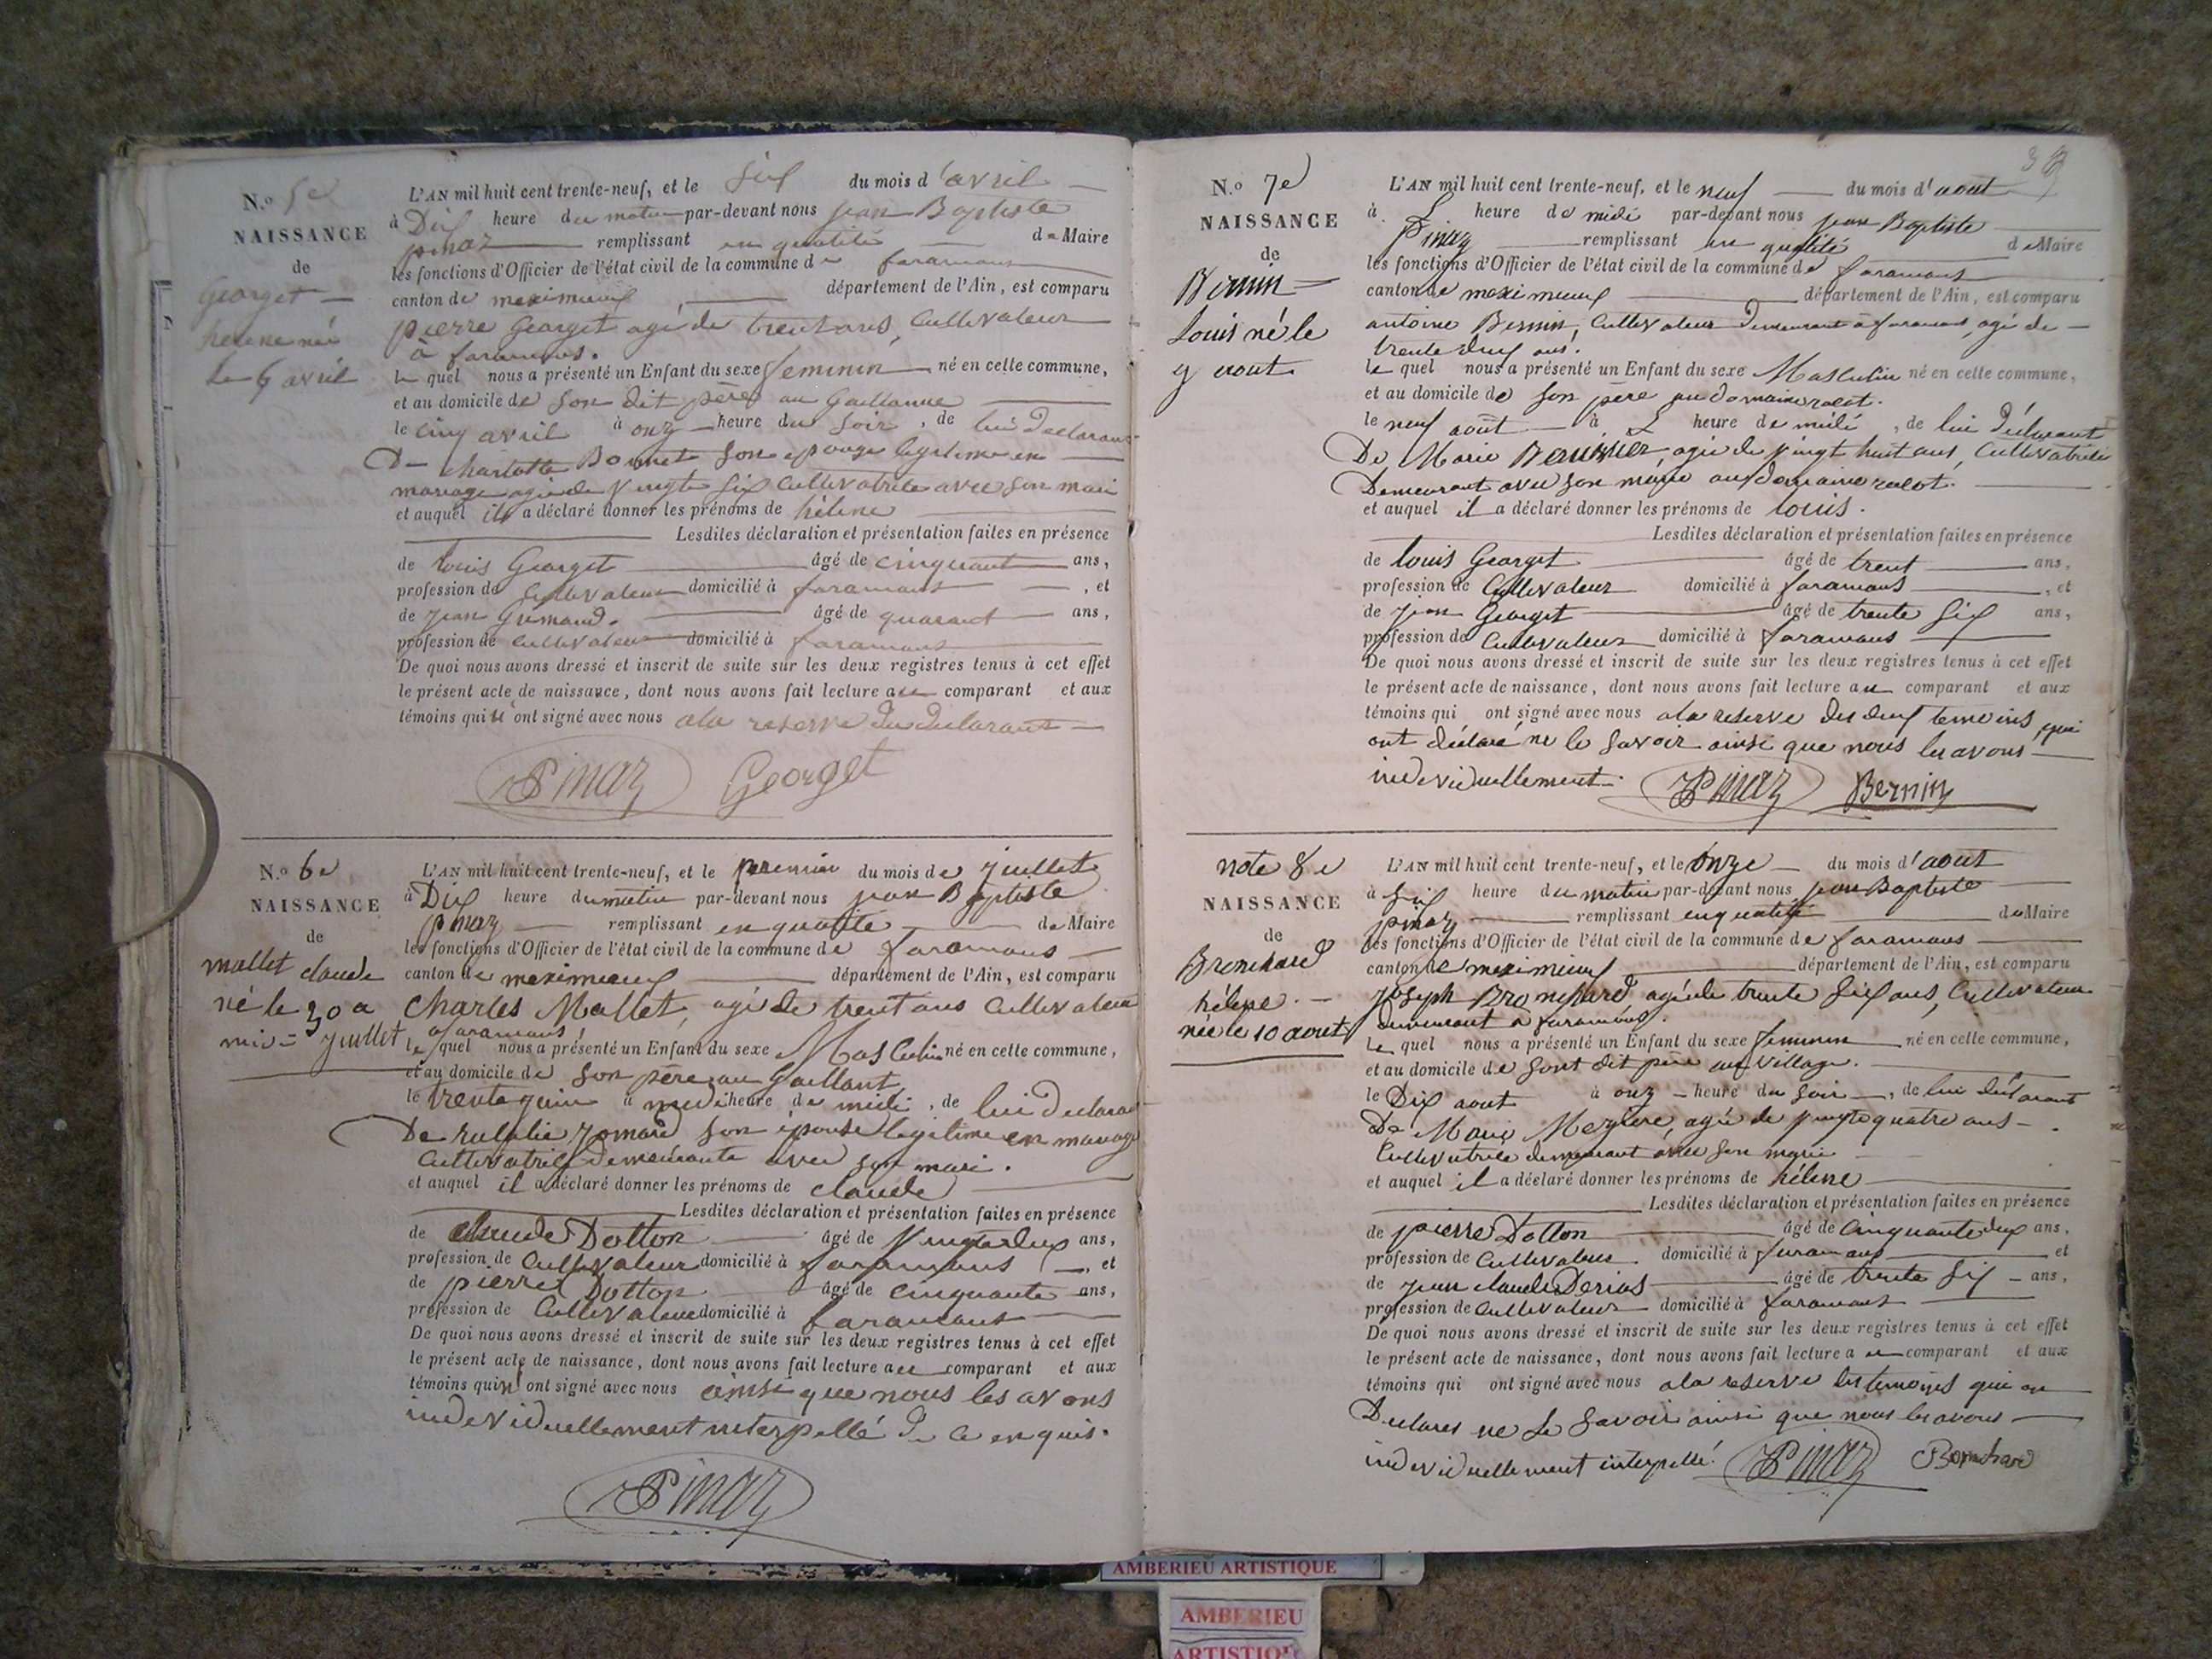 N.o 5e
NAISSANCE
de
Georget
helene née
le 5 avril
L'AN mil huit cent trente-neuf, et le six du mois d'avril
à Dix heure du matin par-devant nous jean Baptiste
pinaz remplissant en qualité de Maire
les fonctions d'Officier de l'état civil de la commune de faramans
canton de meximieux département de l'Ain, est comparu
pierre Georget agé de trent ans, Cultivateur
à faramans.
le quel nous a présenté un Enfant du sexe feminin né en cette commune,
et au domicile de son dit père au
le cinq avril à onz heure du soir, de lui declarant
De charlotte Bonnet son epouse legitime en
mariage agée de vingt six Cultivatrice avec son mari
et auquel il a déclaré donner les prénoms de hélene
Lesdites déclaration et présentation faites en présence
de louis Georget âgé de cinquant ans,
profession de Cultivateur domicilié à faramans, et
de jean âgé de quarant ans,
profession de cultivateur domicilié à faramans
De quoi nous avons dressé et inscrit de suite sur les deux registres tenus à cet effet
le présent acte de naissance, dont nous avons fait lecture au comparant et aux
témoins qui n'ont signé avec nous ala reserve du declarant
Pinaz Georget
N.o 6e
NAISSANCE
de
mallet claude
né le 30 a
juillet
L'AN mil huit cent trente-neuf, et le premier du mois de juillet
à Dix heure du matin par-devant nous jean Baptiste
pinaz remplissant en qualité de Maire
les fonctions d'Officier de l'état civil de la commune de faramans
canton de meximieux département de l'Ain, est comparu
Charles Mallet, agé de trent ans Cultivateur
a faramans,
le quel nous a présenté un Enfant du sexe Masculin né en cette commune,
et au domicile de son père au Gaillant
le trente juin a midi heure de midi, de lui declarant
De son épouse legitime en mariage
Cultivatrice demeurante avec son mari.
et auquel il a déclaré donner les prénoms de claude
Lesdites déclaration et présentation faites en présence
de claude Dotton âgé de ans,
profession de Cultivateur domicilié à faramans, et
de pierre Dotton âgé de cinquante ans,
profession de Cultivateur domicilié à faramans
De quoi nous avons dressé et inscrit de suite sur les deux registres tenus à cet effet
le présent acte de naissance, dont nous avons fait lecture au comparant et aux
témoins qui n'ont signé avec nous ainsi que nous les avons
individuellement interpellé de ce enquis.
Pinaz
N.o 7e
NAISSANCE
de
Bernin
Louis né le
9 aout
L'AN mil huit cent trente-neuf, et le neuf du mois d'aout
à heure de midi par-devant nous jean Baptiste
Pinaz remplissant en qualité de Maire
les fonctions d'Officier de l'état civil de la commune de faramans
canton de meximieux département de l'Ain, est comparu
antoine Bernin, Cultivateur demeurant à faramans, agé de
trente deux ans.
le quel nous a présenté un Enfant du sexe Masculin né en cette commune,
et au domicile de son père au domaine rolot.
le neuf août à heure de midi, de lui déclarant
De Marie agée de vingt huit ans, Cultivatrice
Demeurant avec son marie au domaine rolot.
et auquel il a déclaré donner les prénoms de louis.
Lesdites déclaration et présentation faites en présence
de louis Georget âgé de trent ans,
profession de Cultivateur domicilié à faramans, et
de jean Georget âgé de trente six ans,
profession de Cultivateur domicilié à faramans
De quoi nous avons dressé et inscrit de suite sur les deux registres tenus à cet effet
le présent acte de naissance, dont nous avons fait lecture au comparant et aux
témoins qui ont signé avec nous ala reserve des deux temoins qui
ont déclaré ne le savoir ainsi que nous les avons
individuellement. Pinaz Bernin
note 8e
NAISSANCE
de
Bronchard
hélene.
née le 10 aout
L'AN mil huit cent trente-neuf, et le onze du mois d'aout
à six heure du matin par-devant nous jean Baptiste
pinaz remplissant en qualité de Maire
les fonctions d'Officier de l'état civil de la commune de faramans
canton de meximieux département de l'Ain, est comparu
Joseph Bronchard agé de trente six ans, Cultivateur
demeurant a faramans.
le quel nous a présenté un Enfant du sexe feminin né en cette commune,
et au domicile de sont dit père au village.
le Dix aout à onz heure du soir, de lui déclarant
De Marie agée de vingt quatre ans
Cultivatrice demeurant avec son marie
et auquel il a déclaré donner les prénoms de hélene
Lesdites déclaration et présentation faites en présence
de pierre Dotton âgé de cinquante deux ans,
profession de Cultivateur domicilié à faramans et
de jean claude âgé de trente six ans,
profession de Cultivateur domicilié à faramans
De quoi nous avons dressé et inscrit de suite sur les deux registres tenus à cet effet
le présent acte de naissance, dont nous avons fait lecture au comparant et aux
témoins qui ont signé avec nous ala reserve des temoins qui on
Declares ne le savoir ainsi que nous les avons
individuellement interpellé. Pinaz
AMBERIEU ARTISTIQUE
AMBERIEU
ARTISTIQUE